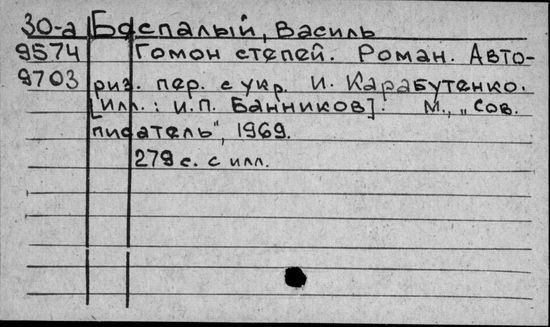 30-а Беспалый, Василь
9574 Гомон степей. Роман. Авто-
9703 риз. пер. с укр. И. Карабутенко.
[Илл.: И.П. Банников]. М., „Сов.
писатель", 1969.
279 с. с илл.